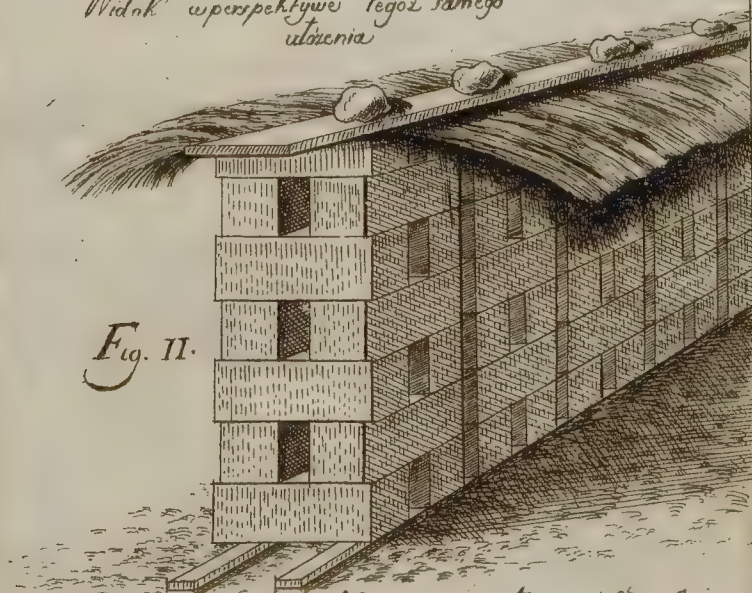 Widok w perspektywe tegoż samego
ułożenia
Fig. II.